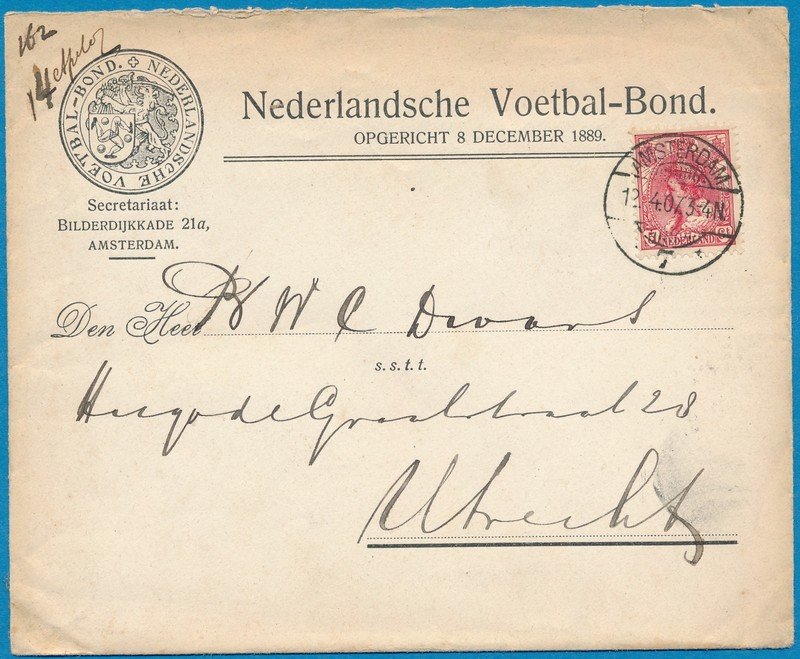 162
14
NEDERLANDSCHE VOETBAL-BOND.
Nederlandsche Voetbal-Bond.
OPGERICHT 8 DECEMBER 1889.
AMSTERDAM
12.4.07 3-4N.
7
NEDERLAND
Secretariaat:
BILDERDIJKKADE 21a,
AMSTERDAM.
Den Heer W C
s.s.t.t.
Hugo de Grootstraat 28
Utrecht